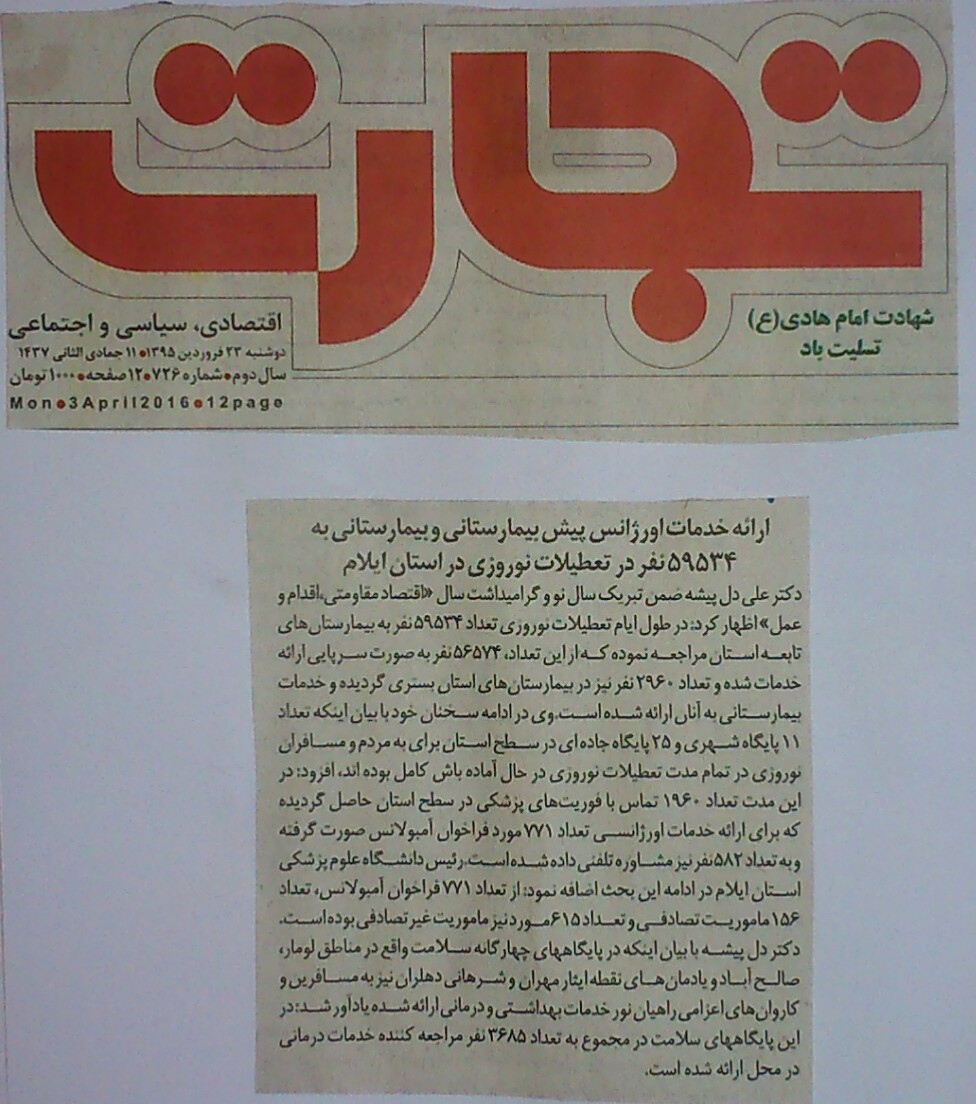 تجارت
شهادت امام هادی(ع)
تسلیت باد
اقتصادی، سیاسی و اجتماعی
دوشنبه ۲۳ فروردین ۱۳۹۵●۱۱ جمادی الثانی ۱۴۳۷
سال دوم●شماره ۷۲۶●۱۲صفحه●۱۰۰۰تومان
Mon●3April2016●12page
ارائه خدمات اورژانس پیش بیمارستانی و بیمارستانی به
۵۹۵۳۴ نفر در تعطیلات نوروزی در استان ایلام
دکتر علی دل پیشه ضمن تبریک سال نو و گرامیداشت سال «اقتصاد مقاومتی،اقدام و
عمل» اظهار کرد: در طول ایام تعطیلات نوروزی تعداد ۵۹۵۳۴ نفر به بیمارستان‌های
تابعه استان مراجعه نموده که از این تعداد، ۵۶۵۷۴ نفر به صورت سرپایی ارائه
خدمات شده و تعداد ۲۹۶۰ نفر نیز در بیمارستان‌های استان بستری گردیده و خدمات
بیمارستانی به آنان ارائه شده است.وی در ادامه سخنان خود با بیان اینکه تعداد
۱۱ پایگاه شهری و ۲۵ پایگاه جاده ای در سطح استان برای به مردم و مسافران
نوروزی در تمام مدت تعطیلات نوروزی در حال آماده باش کامل بوده اند، افزود: در
این مدت تعداد ۱۹۶۰ تماس با فوریت‌های پزشکی در سطح استان حاصل گردیده
که برای ارائه خدمات اورژانسی تعداد ۷۷۱ مورد فراخوان آمبولانس صورت گرفته
و به تعداد ۵۸۲ نفر نیز مشاوره تلفنی داده شده است.رئیس دانشگاه علوم پزشکی
استان ایلام در ادامه این بحث اضافه نمود: از تعداد ۷۷۱ فراخوان آمبولانس، تعداد
۱۵۶ ماموریت تصادفی و تعداد ۶۱۵ مورد نیز ماموریت غیر تصادفی بوده است.
دکتر دل پیشه با بیان اینکه در پایگاههای چهارگانه سلامت واقع در مناطق لومار،
صالح آباد و یادمان‌های نقطه ایثار مهران و شرهانی دهلران نیز به مسافرین و
کاروان‌های اعزامی راهیان نور خدمات بهداشتی و درمانی ارائه شده یادآور شد: در
این پایگاههای سلامت در مجموع به تعداد ۳۶۸۵ نفر مراجعه کننده خدمات درمانی
در محل ارائه شده است.